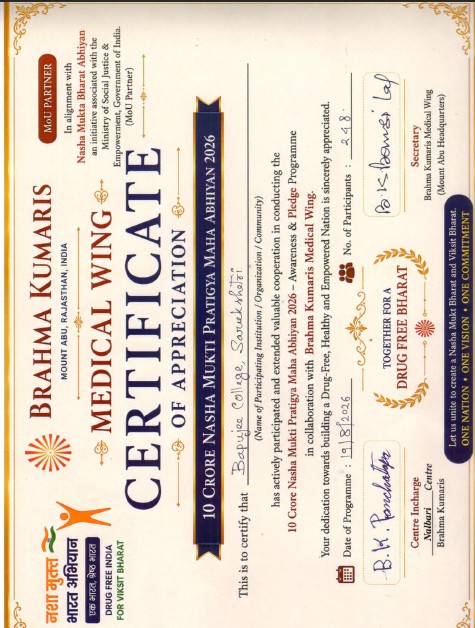 नशा मुक्त
भारत अभियान
एक भारत, श्रेष्ठ भारत
DRUG FREE INDIA
FOR VIKSIT BHARAT
BRAHMA KUMARIS
MOUNT ABU, RAJASTHAN, INDIA
MEDICAL WING
MoU PARTNER
In alignment with
Nasha Mukta Bharat Abhiyan
an initiative associated with the
Ministry of Social Justice &
Empowerment, Government of India.
(MoU Partner)
CERTIFICATE
OF APPRECIATION
10 CRORE NASHA MUKTI PRATIGYA MAHA ABHIYAN 2026
This is to certify that Bapujee College, Sarukshetri
(Name of Participating Institution / Organization / Community)
has actively participated and extended valuable cooperation in conducting the
10 Crore Nasha Mukti Pratigya Maha Abhiyan 2026 – Awareness & Pledge Programme
in collaboration with Brahma Kumaris Medical Wing.
Your dedication towards building a Drug-Free, Healthy and Empowered Nation is sincerely appreciated.
Date of Programme : 19/8/2026
No. of Participants : 248.
B.K.
Centre Incharge
Nalbari Centre
Brahma Kumaris
TOGETHER FOR A
DRUG FREE BHARAT
B K Bansi Lal
Secretary
Brahma Kumaris Medical Wing
(Mount Abu Headquarters)
Let us unite to create a Nasha Mukt Bharat and Viksit Bharat.
ONE NATION • ONE VISION • ONE COMMITMENT